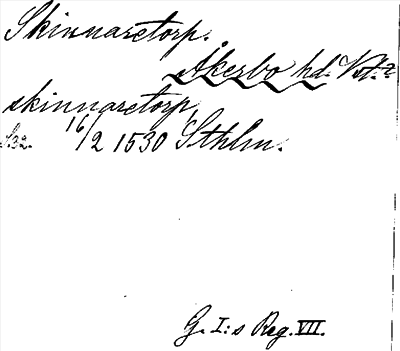 Skinnaretorp.
Åkerbo hd. Vstm?
skinnaretorp,
S. 32. 16/2 1530 Sthlm.
G. I:s Reg. VII.